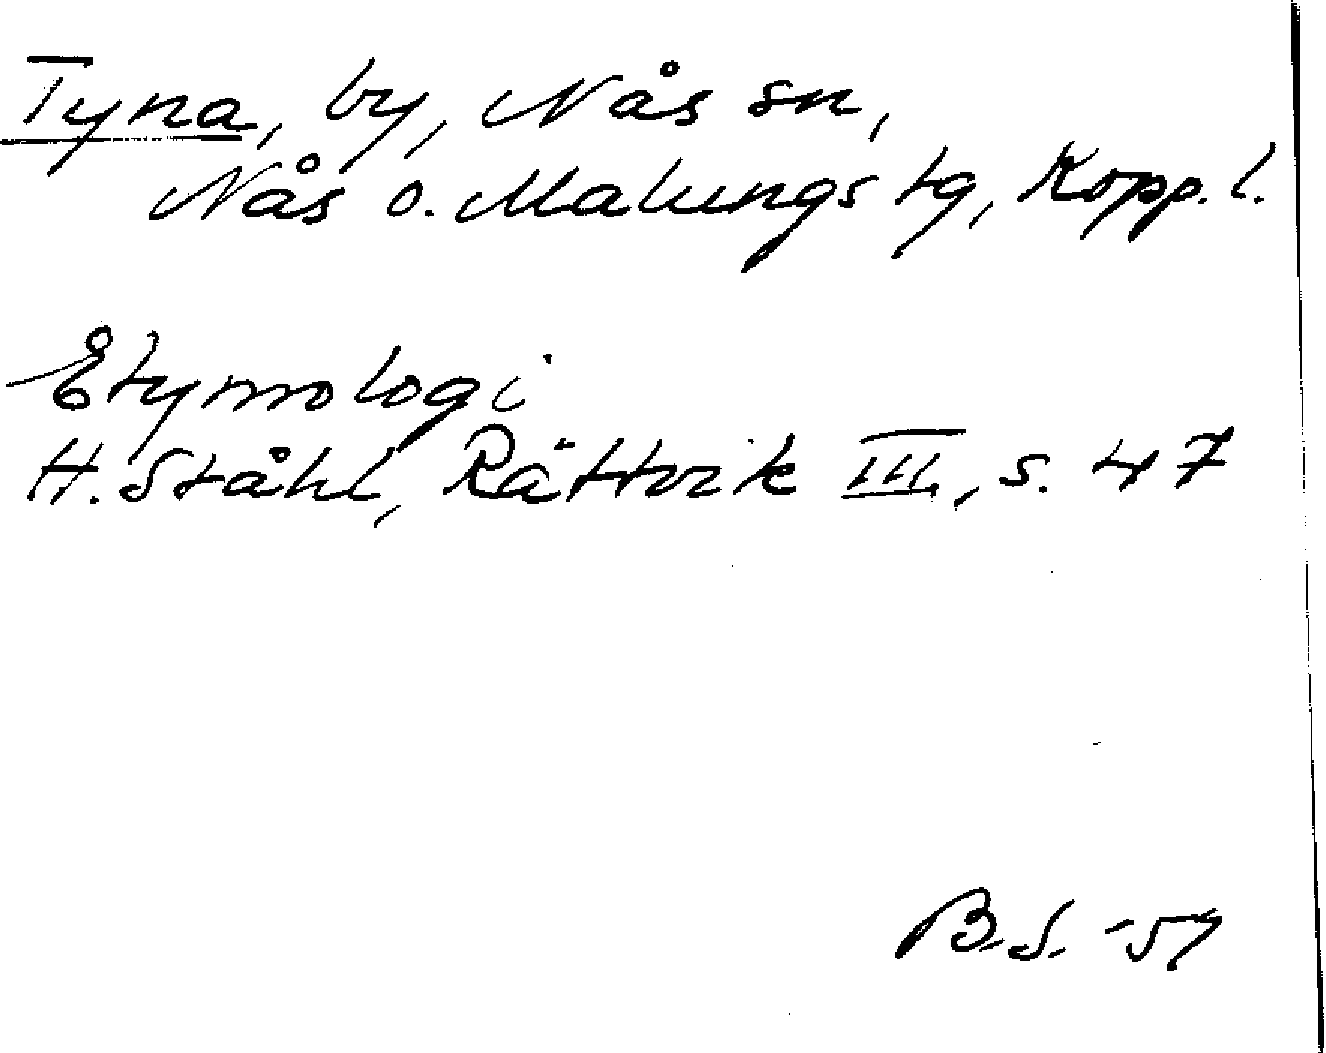 Tyna, by, Nås sn,
Nås o. Malungs tg, Kopp. l.
Etymologi
H. Ståhl, Rättvik III, s. 47
B.S. -57